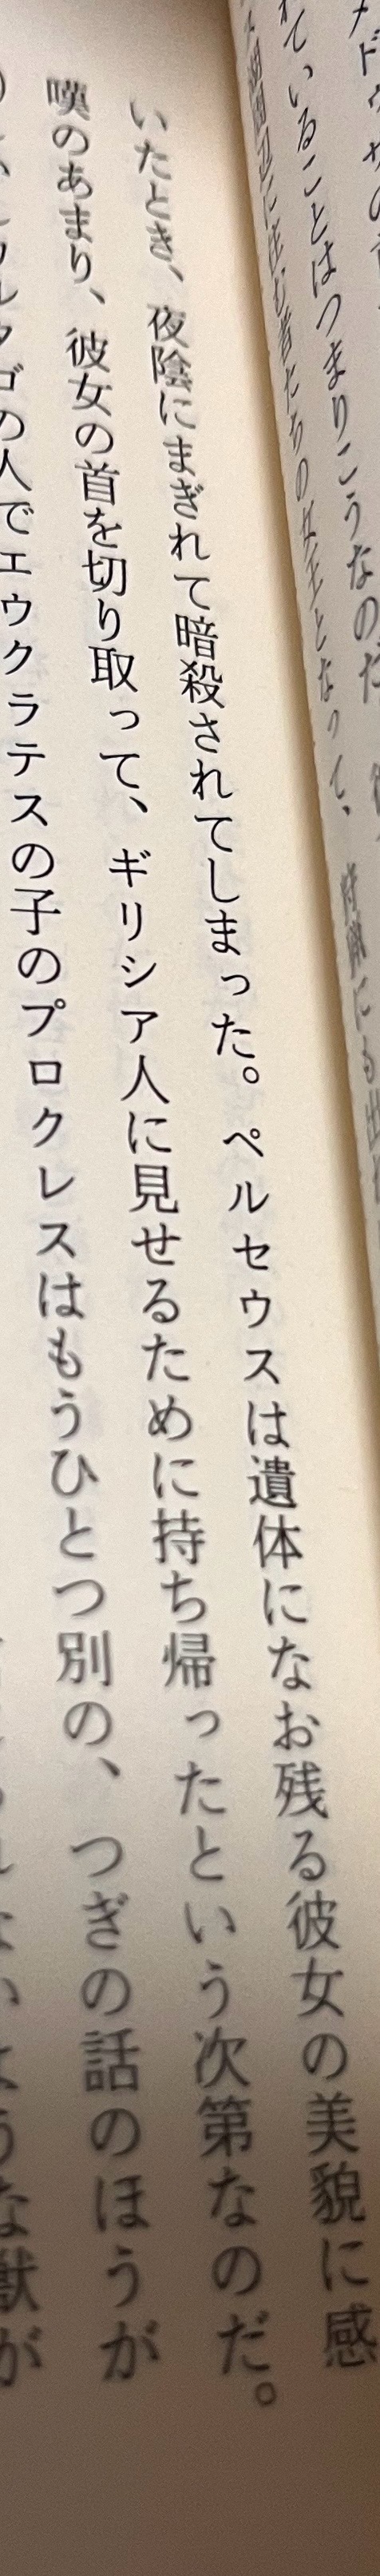 れていることはつまりこうなのだ
たちの女王となって、狩猟にも出
いたとき、夜陰にまぎれて暗殺されてしまった。ペルセウスは遺体になお残る彼女の美貌に感
嘆のあまり、彼女の首を切り取って、ギリシア人に見せるために持ち帰ったという次第なのだ。
の人でエウクラテスの子のプロクレスはもうひとつ別の、つぎの話のほうが
ような獣が